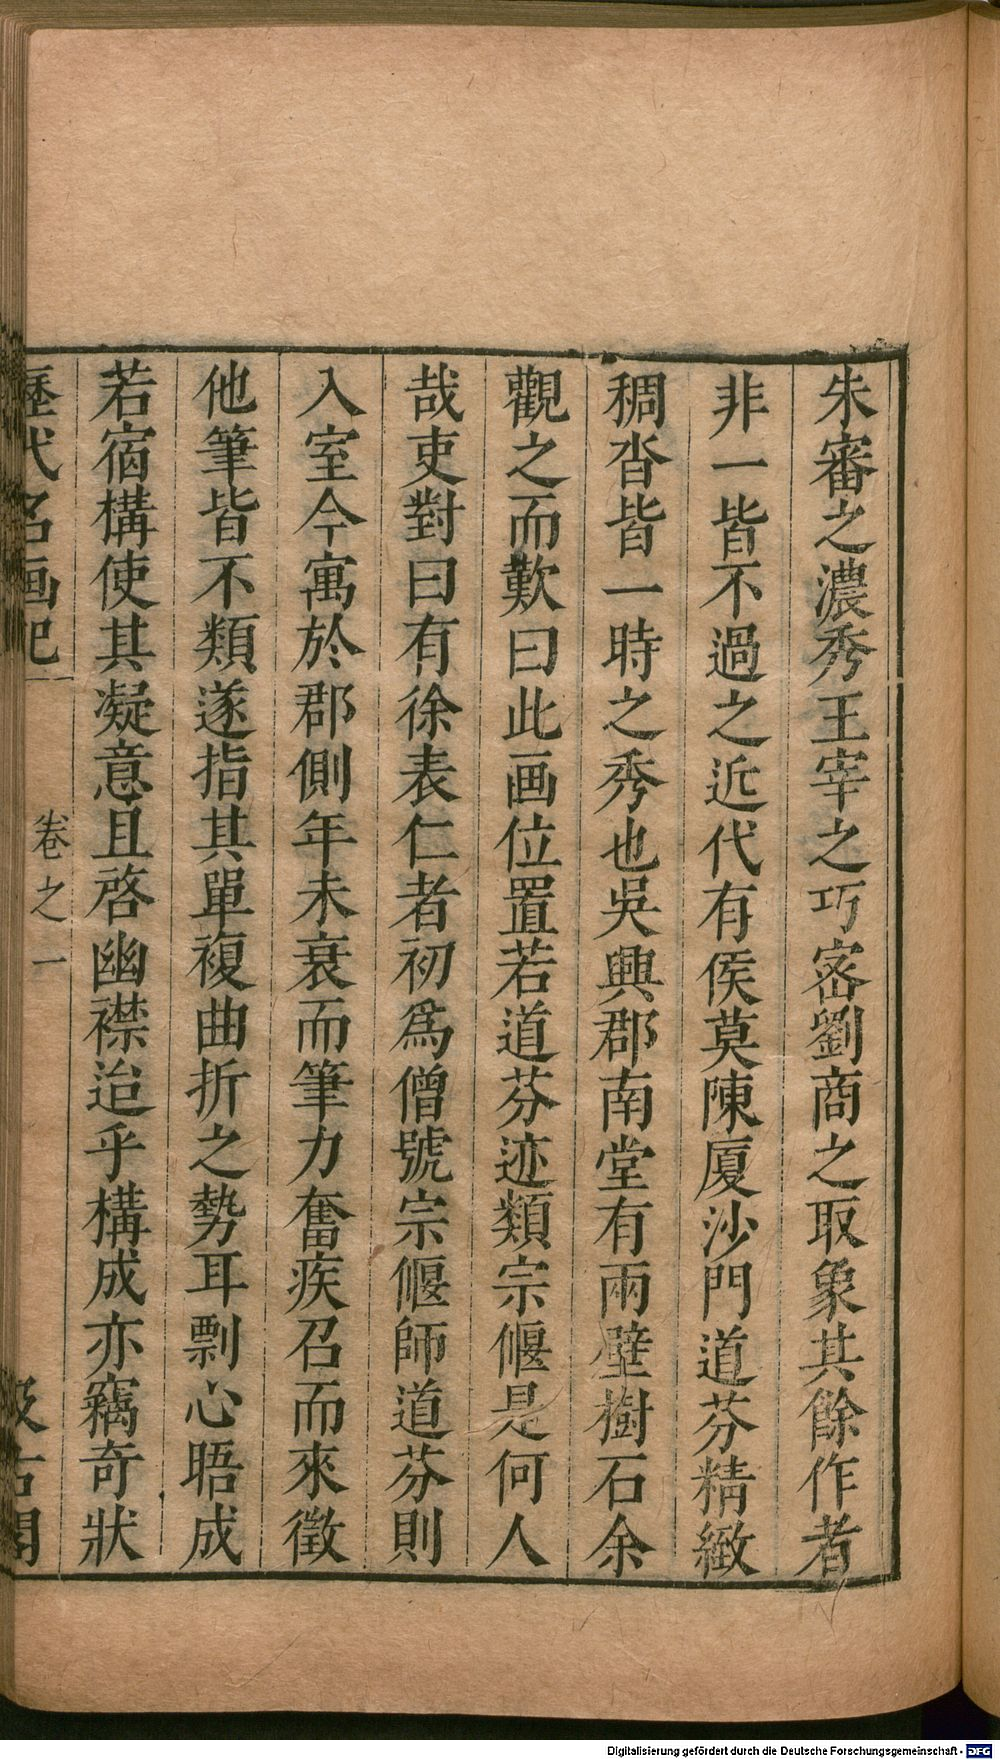 朱審之濃秀王宰之巧密劉商之取象其餘作者
非一皆不過之近代有侯莫陳厦沙門道芬精緻
稠沓皆一時之秀也吳興郡南堂有兩壁樹石余
觀之而歎曰此画位置若道芬迹類宗偃是何人
哉吏對曰有徐表仁者初爲僧號宗偃師道芬則
入室今寓於郡側年未衰而筆力奮疾召而來徵
他筆皆不類遂指其單複曲折之勢耳剽心晤成
若宿構使其凝意且啓幽襟迨乎構成亦竊奇狀
歷代名画記 卷之一 汲古閣
Digitalisierung gefördert durch die Deutsche Forschungsgemeinschaft - DFG